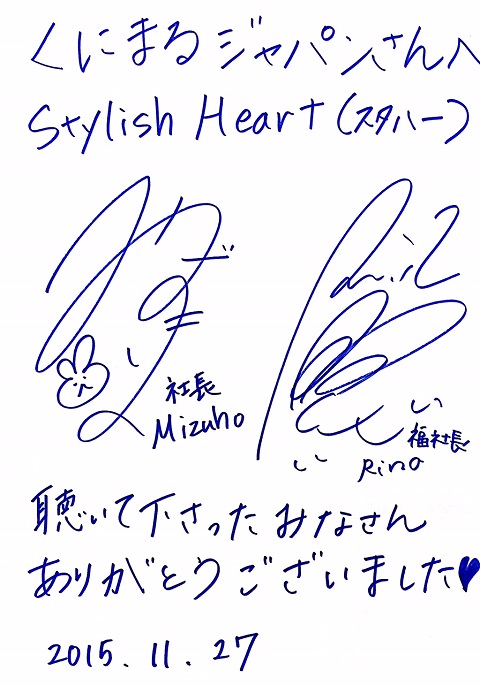 くにまるジャパンさんへ
Stylish Heart(スタハー)
社長
Mizuho
福社長
Rina
聴いて下さったみなさん
ありがとうございました♥
2015.11.27